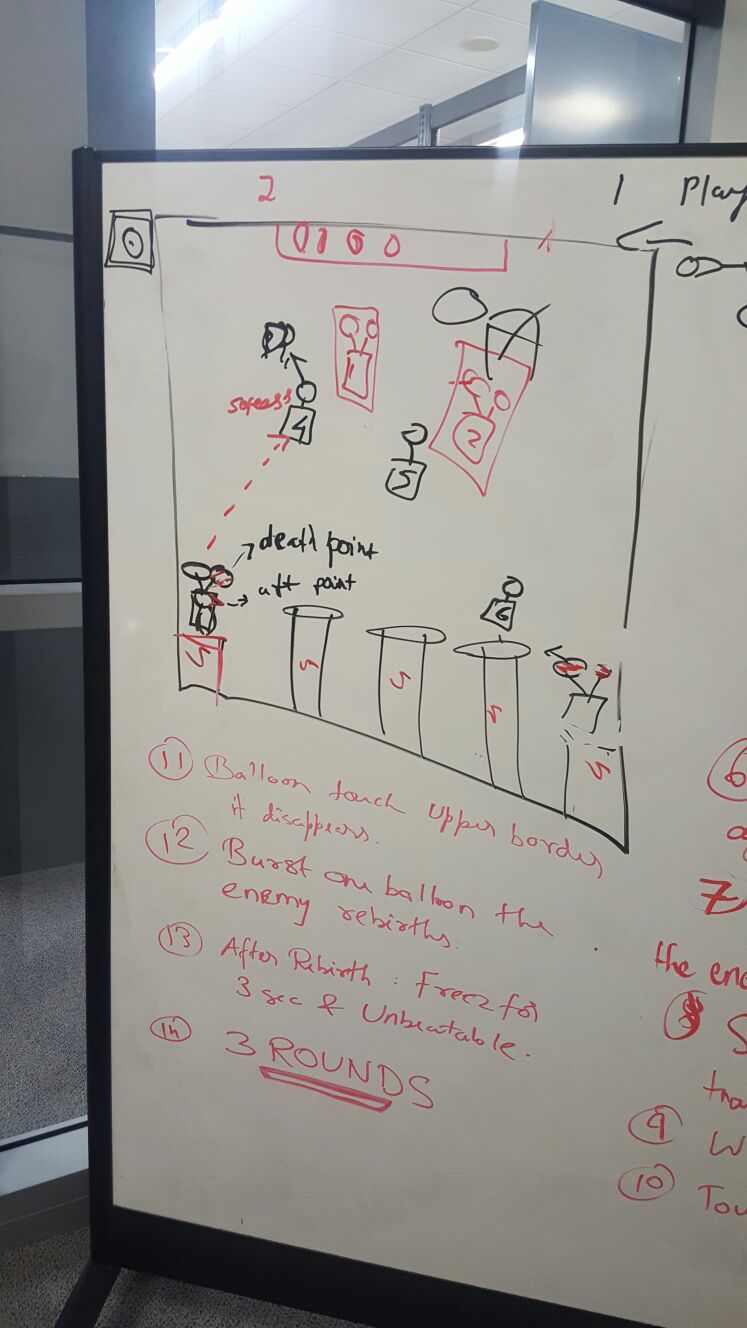 2
1 Play
1
4
2
5
death point
att point
6
5
5
5
5
5
11 Balloon touch upper border
it disappears.
12 Burst one balloon the
enemy rebirths.
13 After Rebirth : Freez for
3 sec & Unbeatable.
14 3 ROUNDS
6
7
the ene
8 S
tra
9 W
10 Tou